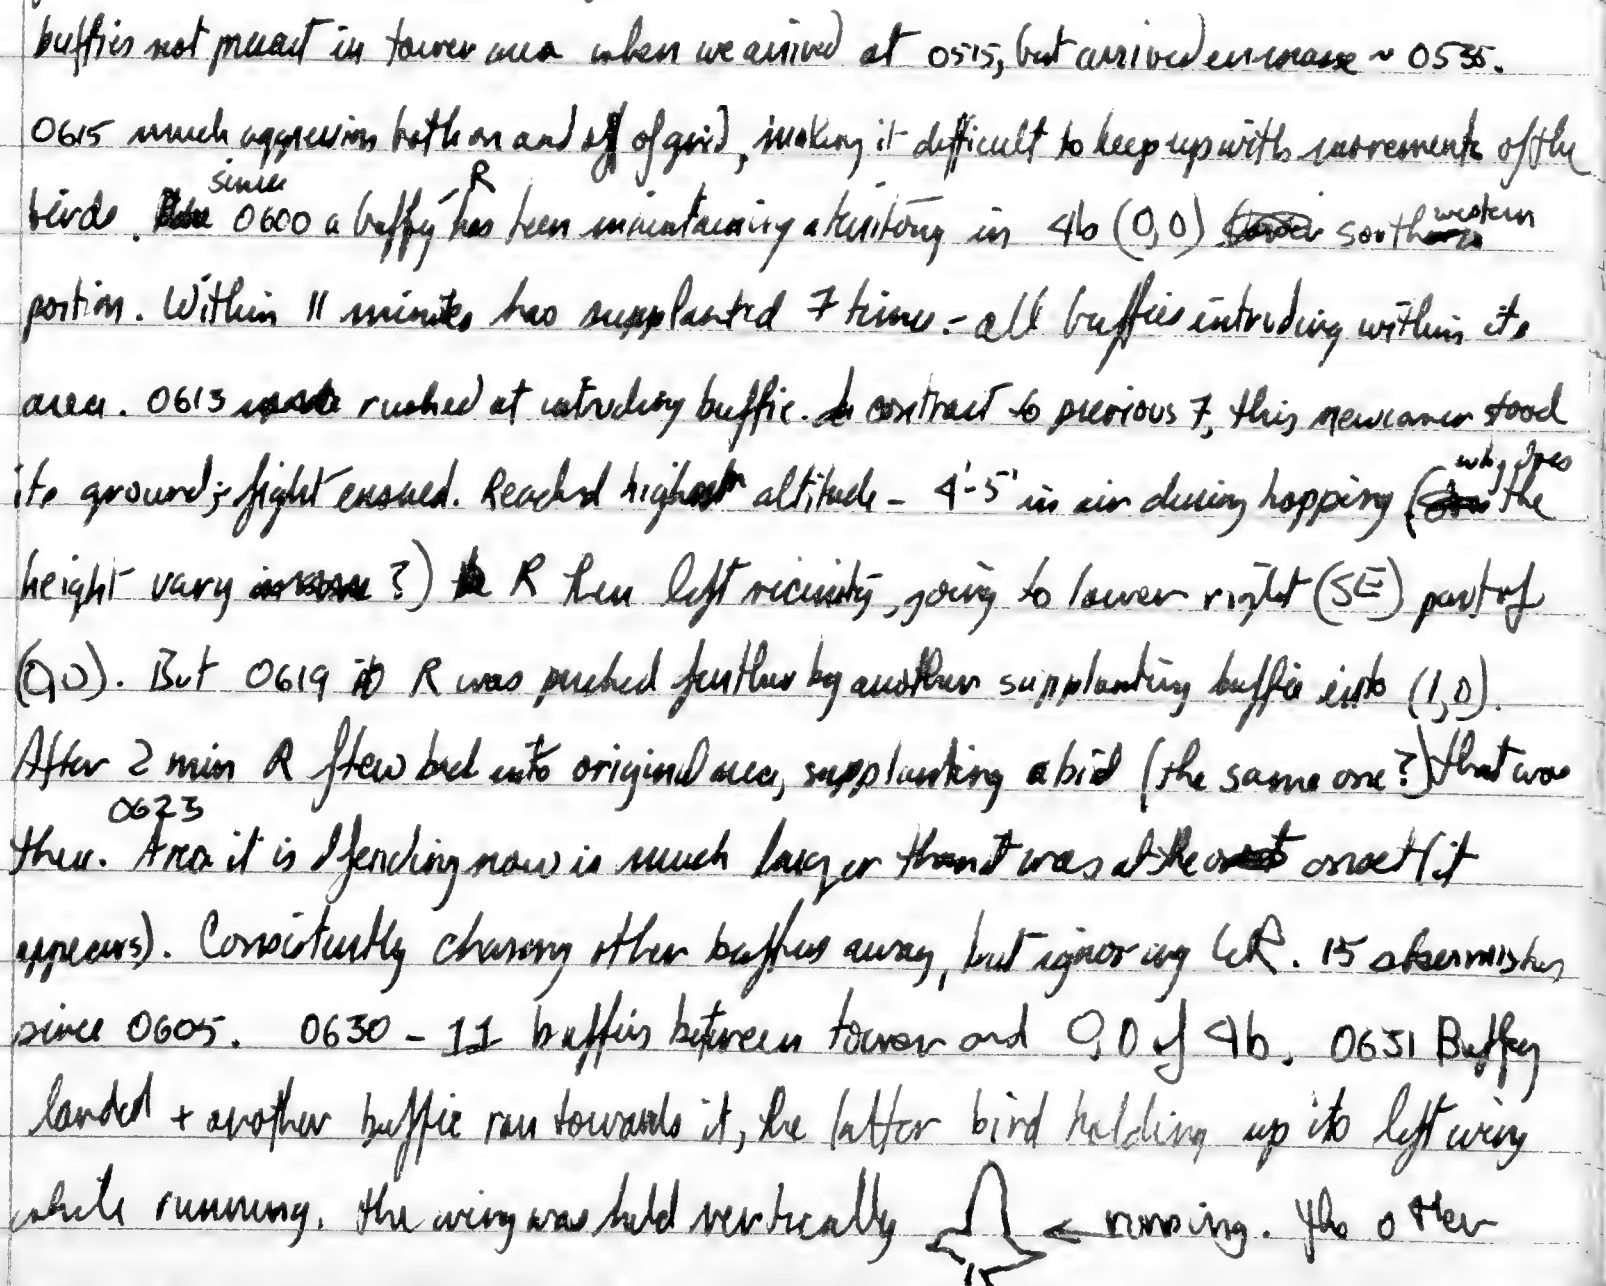 buffies not present in tower area when we arrived at 0515, but arrived en masse ~ 0535.
0615 much aggression both on and off of grid, making it difficult to keep up with movements of the
birds. since 0600 a buffy R has been maintaining a territory in 4b (0,0) southwestern
portion. Within 11 minutes has supplanted 7 times - all buffies intruding within its
area. 0613 rushed at intruding buffie. In contrast to previous 7, this newcomer stood
its ground; fight ensued. Reached highest altitude - 4'-5' in air during hopping (why does the
height vary ?) R then left vicinity, going to lower right (SE) part of
(0,0). But 0619 R was pushed further by another supplanting buffie into (1,0).
After 2 min R flew back into original area, supplanting a bird (the same one?) that was
there. 0623 Area it is defending now is much larger than it was at the onset (it
appears). Consistently chasing other buffies away, but ignoring WR. 15 skirmishes
since 0605. 0630 - 11 buffies between tower and 0,0 of 4b. 0631 Buffy
landed + another buffie ran towards it, the latter bird holding up its left wing
while running. The wing was held vertically ← running. The other